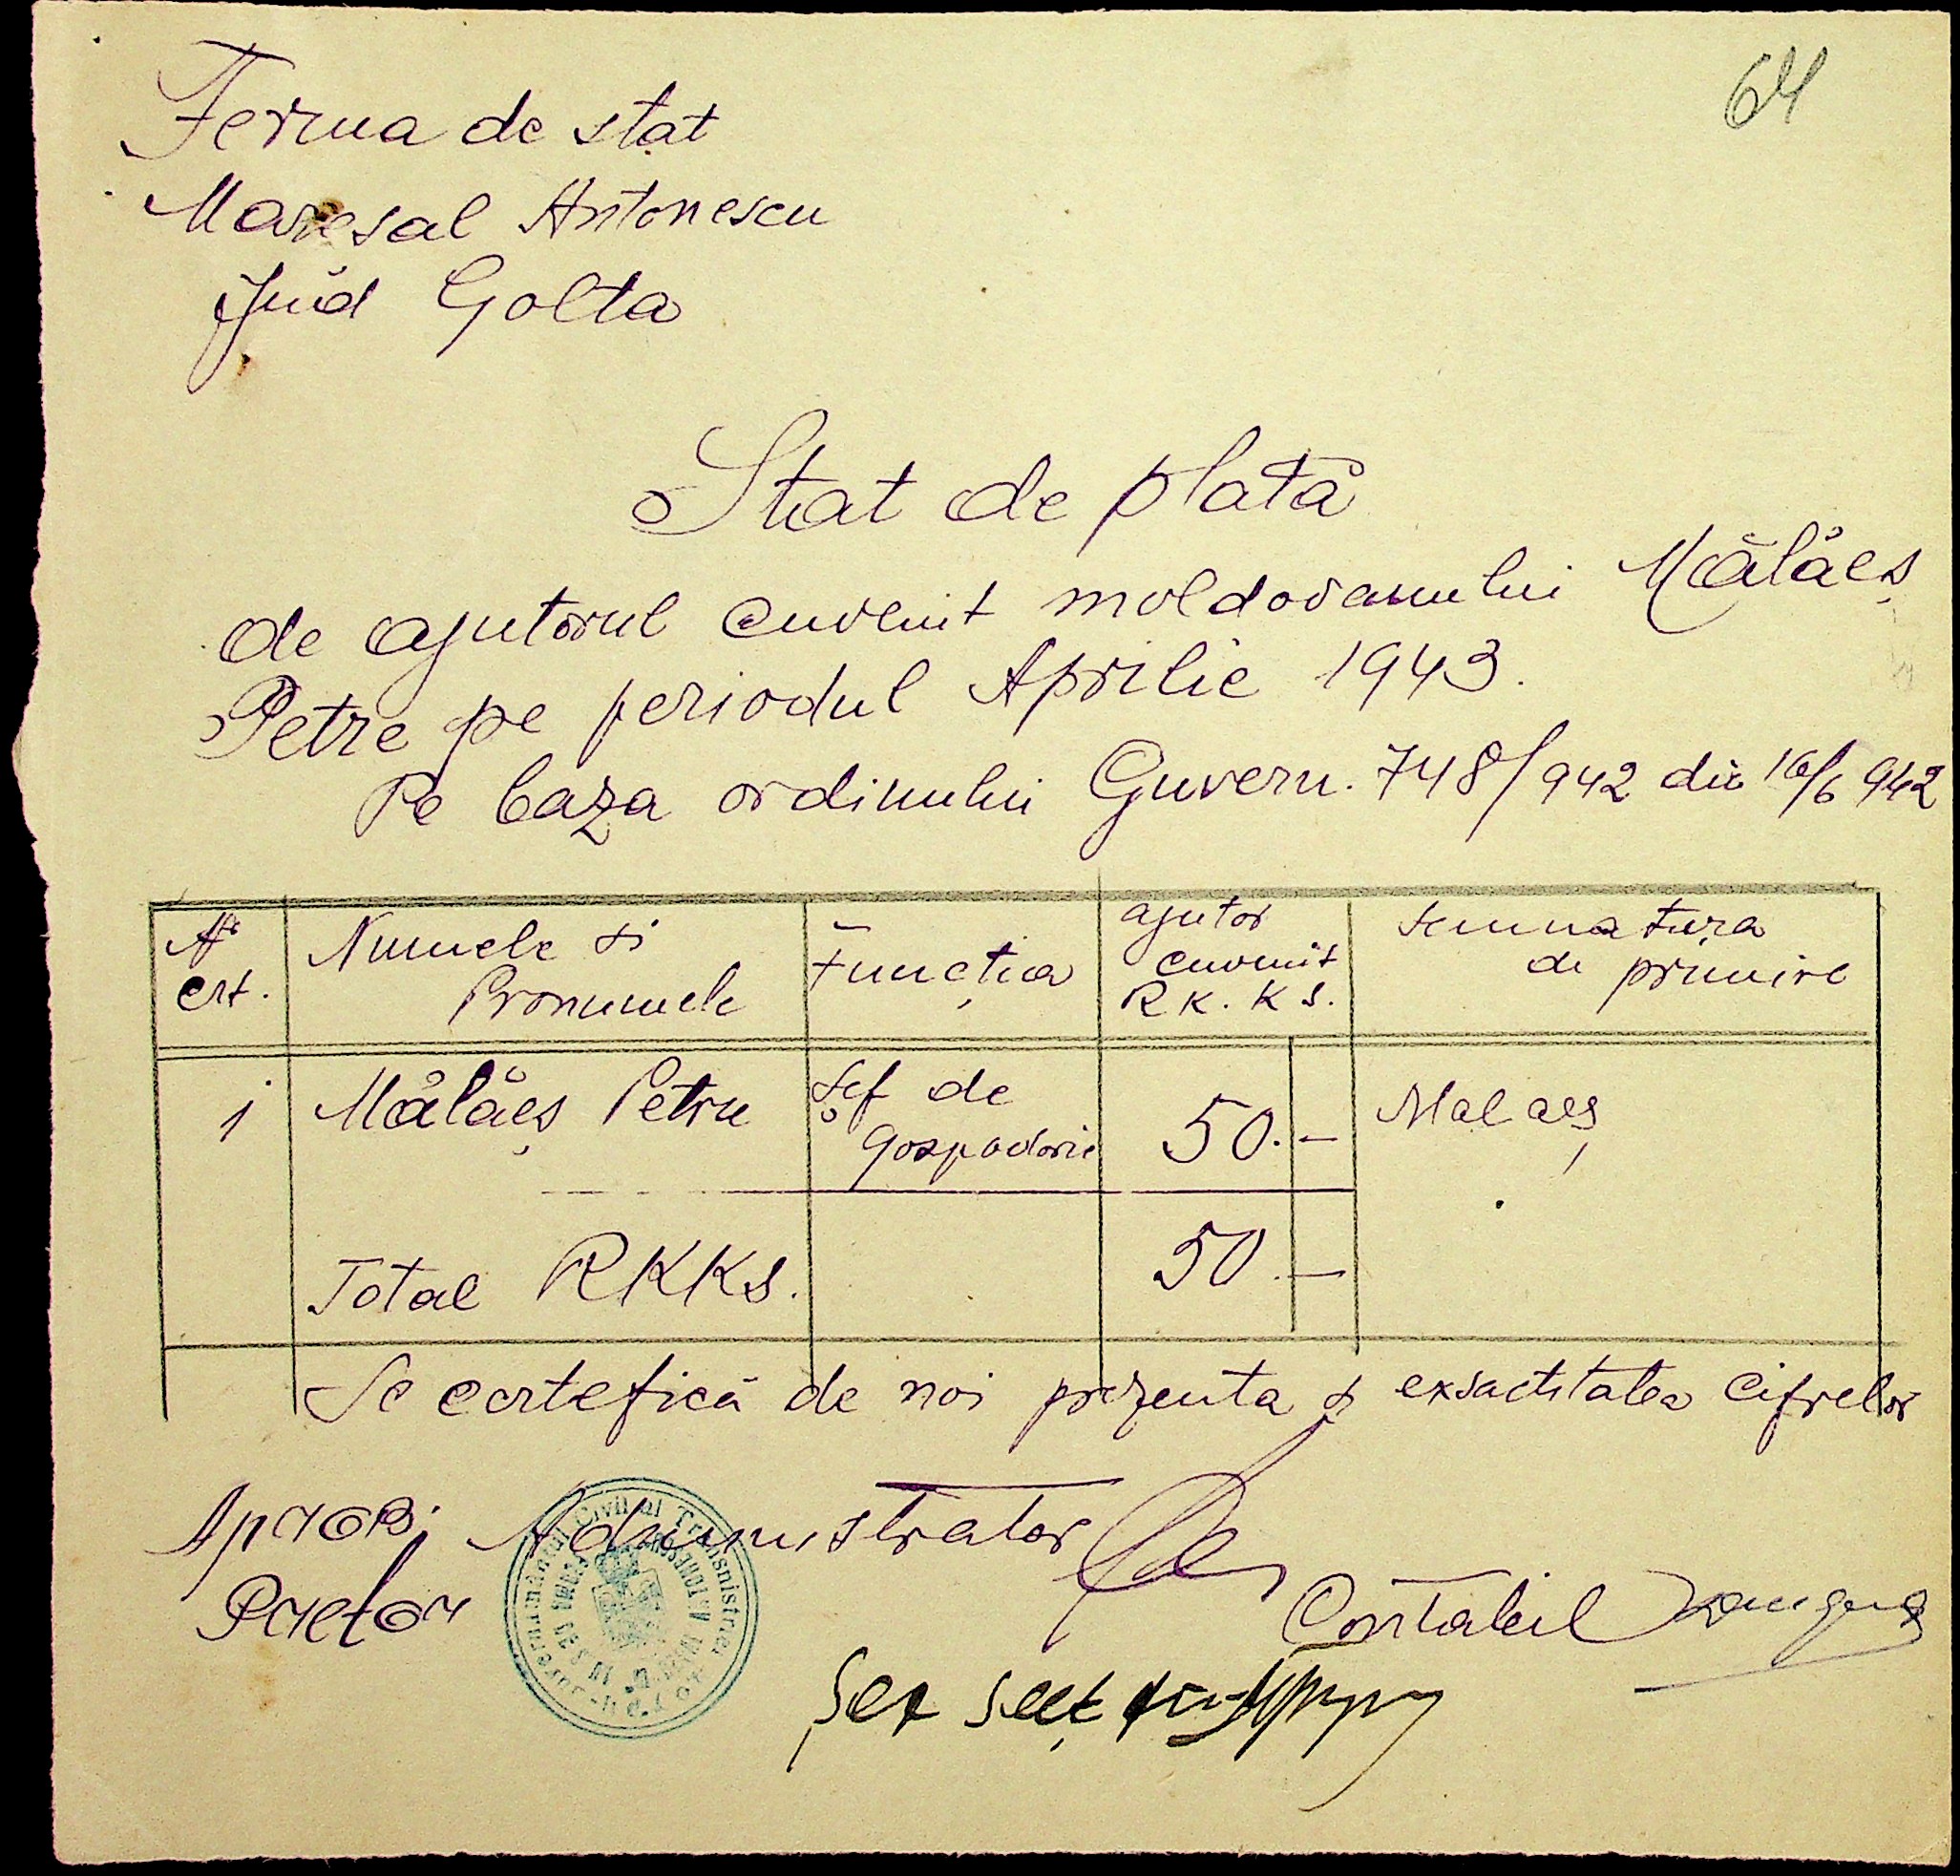 64
Ferma de stat
Maresal Antonescu
Jud Golta
Stat de plată
de ajutorul cuvenit moldovanului Mălăeș
Petre pe periodul Aprilie 1943.
Pe baza ordinului Guvern. 748/942 din 16/6 942
№ crt.
Numele si Pronumele
Funcția
ajutor cuvenit R K. K S.
semnatura de primire
1 Mălăeș Petru Șef de gospodarie 50.— Malaeș
Total RKKS. 50.—
Se certefică de noi prezenta și exsactitatea cifrelor
Aprobi Administrator
Pretor
Contabil
Șef secț
Guvernământul Civil al Transnistriei